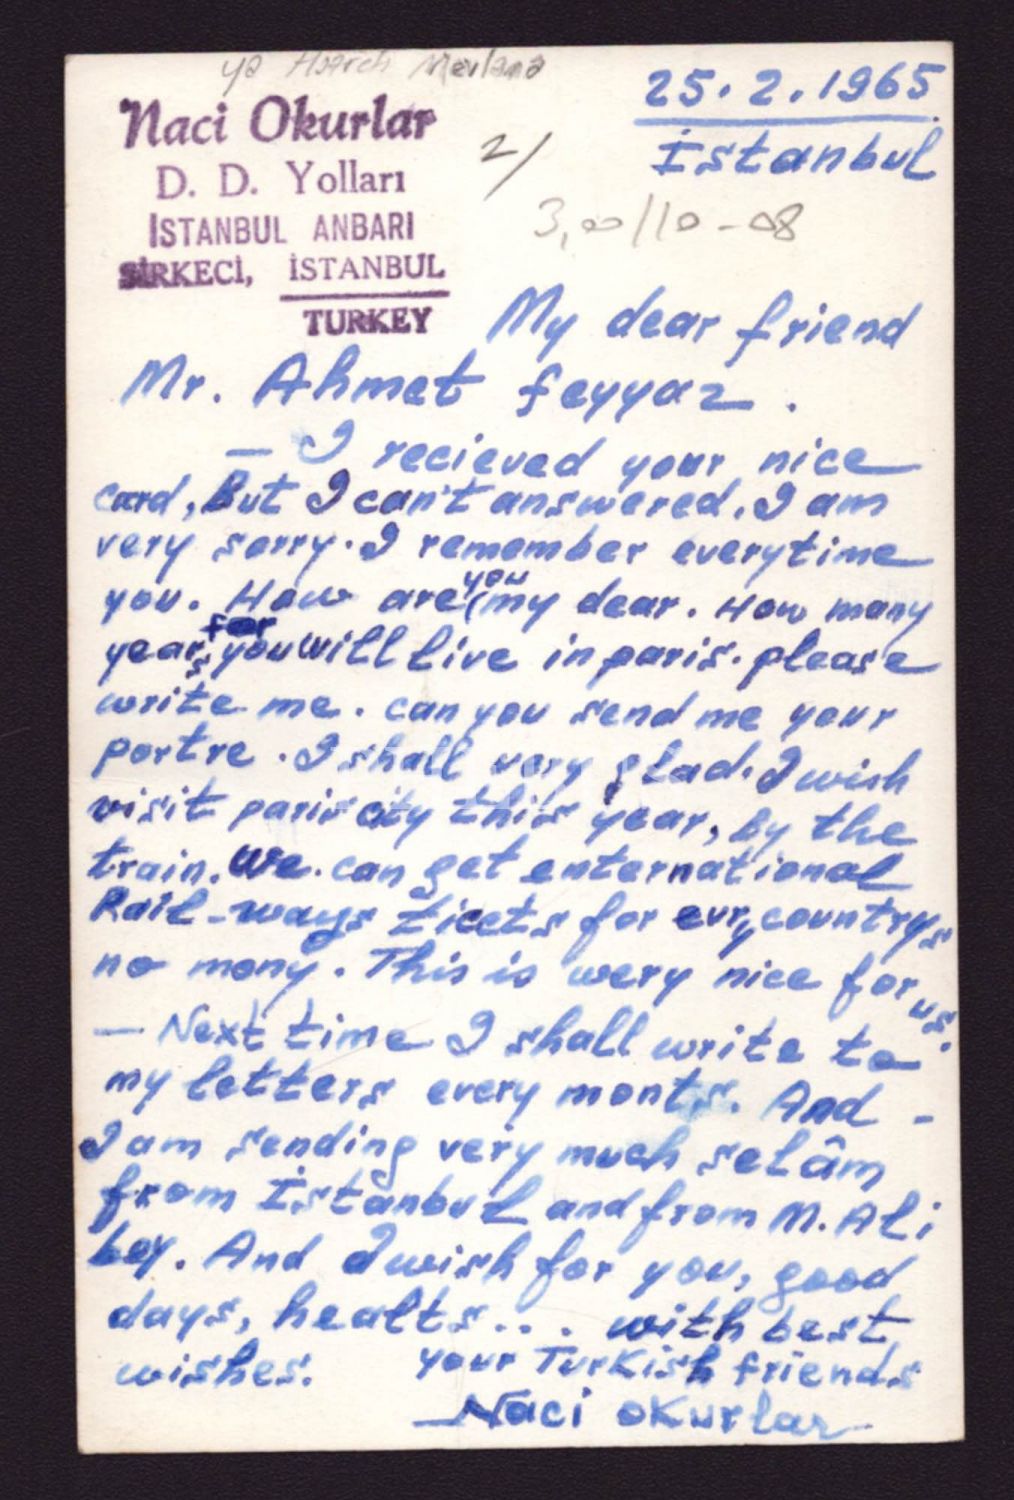 25.2.1965
İstanbul
Naci Okurlar
D. D. Yolları
İSTANBUL ANBARI
SİRKECİ, İSTANBUL
TURKEY
2/
3,00/10-08
My dear friend
Mr. Ahmet feyyaz.
— I recieved your nice
card, But I can't answered. I am
very sorry. I remember everytime
you. How are you my dear. How many
years for you will live in paris. please
write me. can you send me your
portre. I shall very glad. I wish
visit paris city this year, By the
train. We. can get enternational
Rail-ways ticets for evry countrys
no mony. This is wery nice for us.
— Next time I shall write to
my letters every monts. And -
I am sending very much selâm
from İstanbul and from M. Ali
bey. And I wish for you, good
days, healts... with best
wishes. your Turkish friends
Naci okurlar